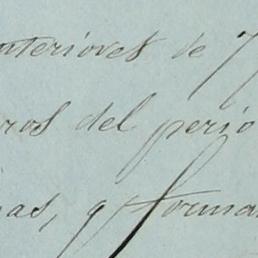 nteriores de 7
ros del perio
as, y forma